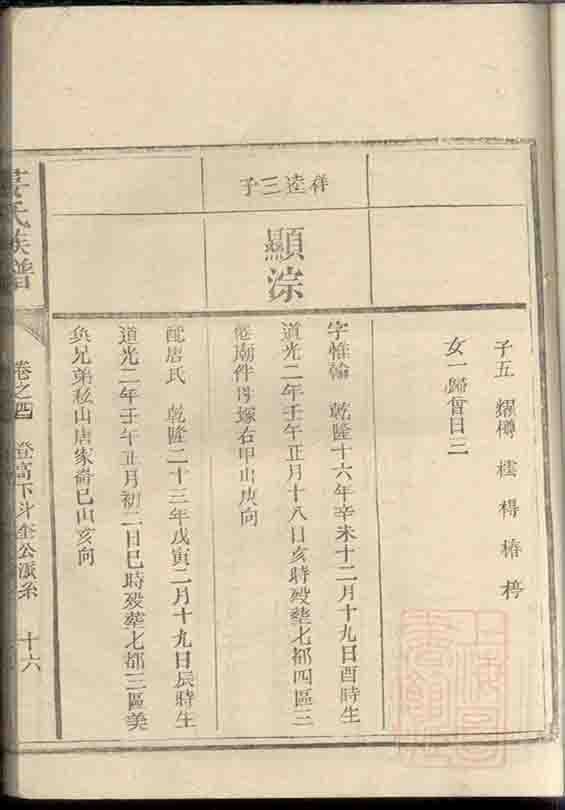 子五 燿樽 樗 椿
女一歸曾日三
祥逵三子
顯淙
字惟翰 乾隆十六年辛未十二月十九日酉時生
道光二年壬午正月十八日亥時殁塟七都四區三
廟件母塚右甲山庚向
配唐氏 乾隆二十三年戊寅二月十九日辰時生
道光二年壬午正月初二日巳時殁塟七都三區美
與兄弟私山唐家崙巳山亥向
氏族譜
卷之四 登高下斗奎公派系 十六
上海圖書館藏